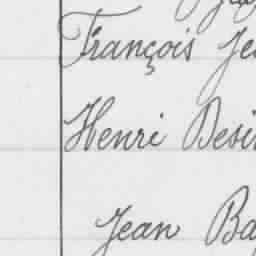 François Je
Henri Desi
Jean Ba